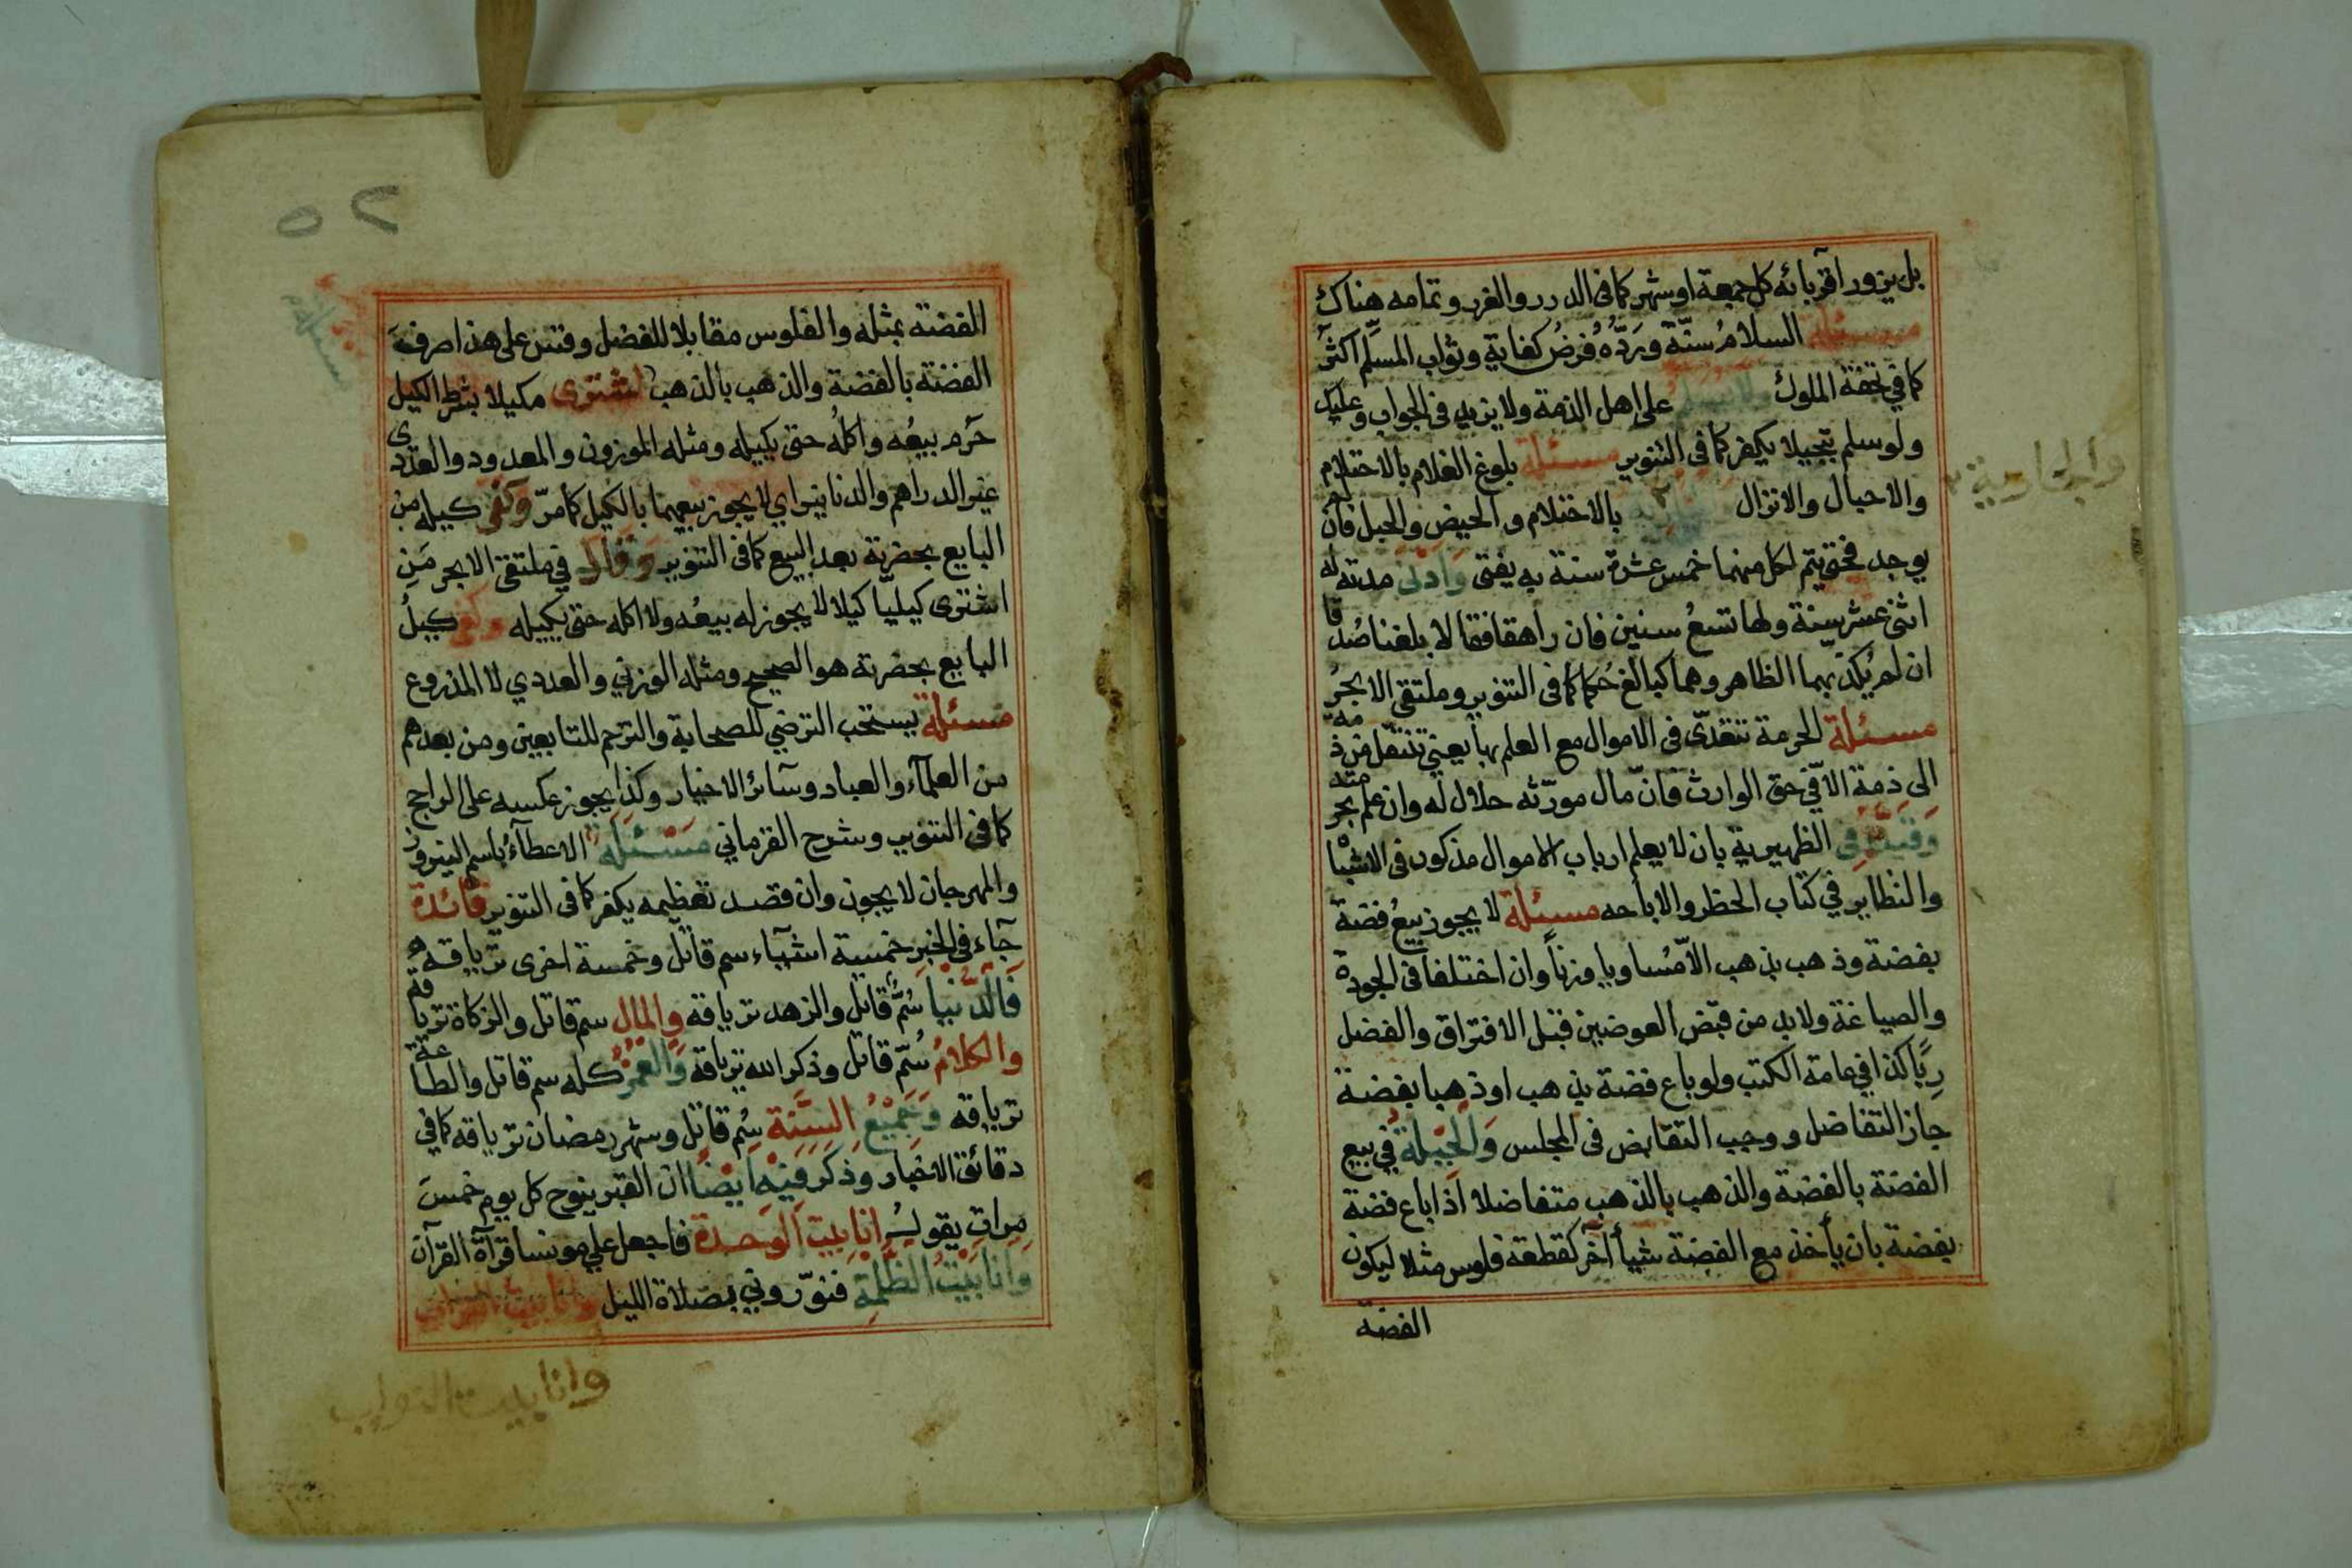 بل يزور اقربائه كل جمعة او شهر كما فى الدرر والغرر وتمامه هناك
مسئلة السلام سنّة وردّه فرض كفاية وثواب المسلّم اكثر
كما في تحفة الملوك ولا يسلم على اهل الذمة ولا يزيد فى الجواب وعليك
ولو سلم تبجيلا يكفر كما فى التنوير مسئلة بلوغ الغلام بالاحتلام
والاحبال والانزال بالاحتلام والحيض والحبل فان لم
والجارية
يوجد فحتى يتم لكل منهما خمس عشرة سنة به يفتى وادنى مدته له
اثنى عشر سنة ولها تسع سنين فان راهقا فقالا بلغنا صدقا
ان لم يكذبهما الظاهر وهما كبالغ حكما كما فى التنوير وملتقى الابحر
مسئلة الحرمة تتعدّى فى الاموال مع العلم بها يعني تنتقل من ذمة
الى ذمة الا في حق الوارث فانّ مال مورّثه حلال له وان علم بحرمته
وقيده فى الظهيرية بان لا يعلم ارباب الاموال مذكور فى الاشباه
والنظاير في كتاب الحظر والاباحه مسئلة لا يجوز بيع فضة
بفضة وذهب بذهب الا متساويا وزناً وان اختلفا فى الجودة
والصياغة ولابد من قبض العوضين قبل الافتراق والفضل
رباً كذا في عامة الكتب ولو باع فضة بذهب او ذهبا بفضة
جاز التفاضل ووجب التقابض فى المجلس والحيلة في بيع
الفضة بالفضة والذهب بالذهب متفاضلا اذا باع فضة
بفضة بان يأخذ مع الفضة شيأ آخر كقطعة فلوس مثلا ليكون
الفضة
٢٥
الفضة بمثله والفلوس مقابلا للفضل وقس على هذا صرف
الفضة بالفضة والذهب بالذهب اشترى مكيلا بشرط الكيل
حرم بيعُه واكلُه حتى يكيله ومثله الموزون والمعدود والعددى
غير الدراهم والدنانير اي لا يجوز بيعهما بالكيل كما مرّ وكفى كيله من
البايع بحضرته بعد البيع كما فى التنوير وقال في ملتقى الابحر مَنِ
اشترى كيليّا كيلا لا يجوز له بيعُه ولا اكله حتى يكيله وكفى كيلُ
البايع بحضرته هو الصحيح ومثله الوزني والعددي لا المذروع
مسئلة يستحب الترضي للصحابة والترحم للتابعين ومن بعدهم
من العلمآء والعباد وسآئر الاخيار وكذا يجوز عكسه على الراجح
كما فى التنوير وشرح القرماني مسئلة الاعطآءُ باسم النيروز
والمهرجان لا يجوز وان قصد تعظيمه يكفر كما فى التنوير فائدة
جآء فى الخبر خمسة اشيآء سم قاتل وخمسة اخرى ترياقه
فالدّنيا سُمّ قاتل والزهد ترياقه والمال سم قاتل والزكاة ترياقه
والكلامُ سُمّ قاتل وذكر الله ترياقه والعمرُ كله سم قاتل والطاعة
ترياقه وجميعُ السّنة سُم قاتل وشهر رمضان ترياقه كما في
دقائق الاخبار وذكر فيه ايضا ان القبر ينوح كل يوم خمس
مرات يقول انا بيت الوحدة فاجعل علي مونسا قرآة القرآن
وانا بيتُ الظلمة فنوّروني بصلاة الليل وانا بيت التراب
وانا بيت التراب